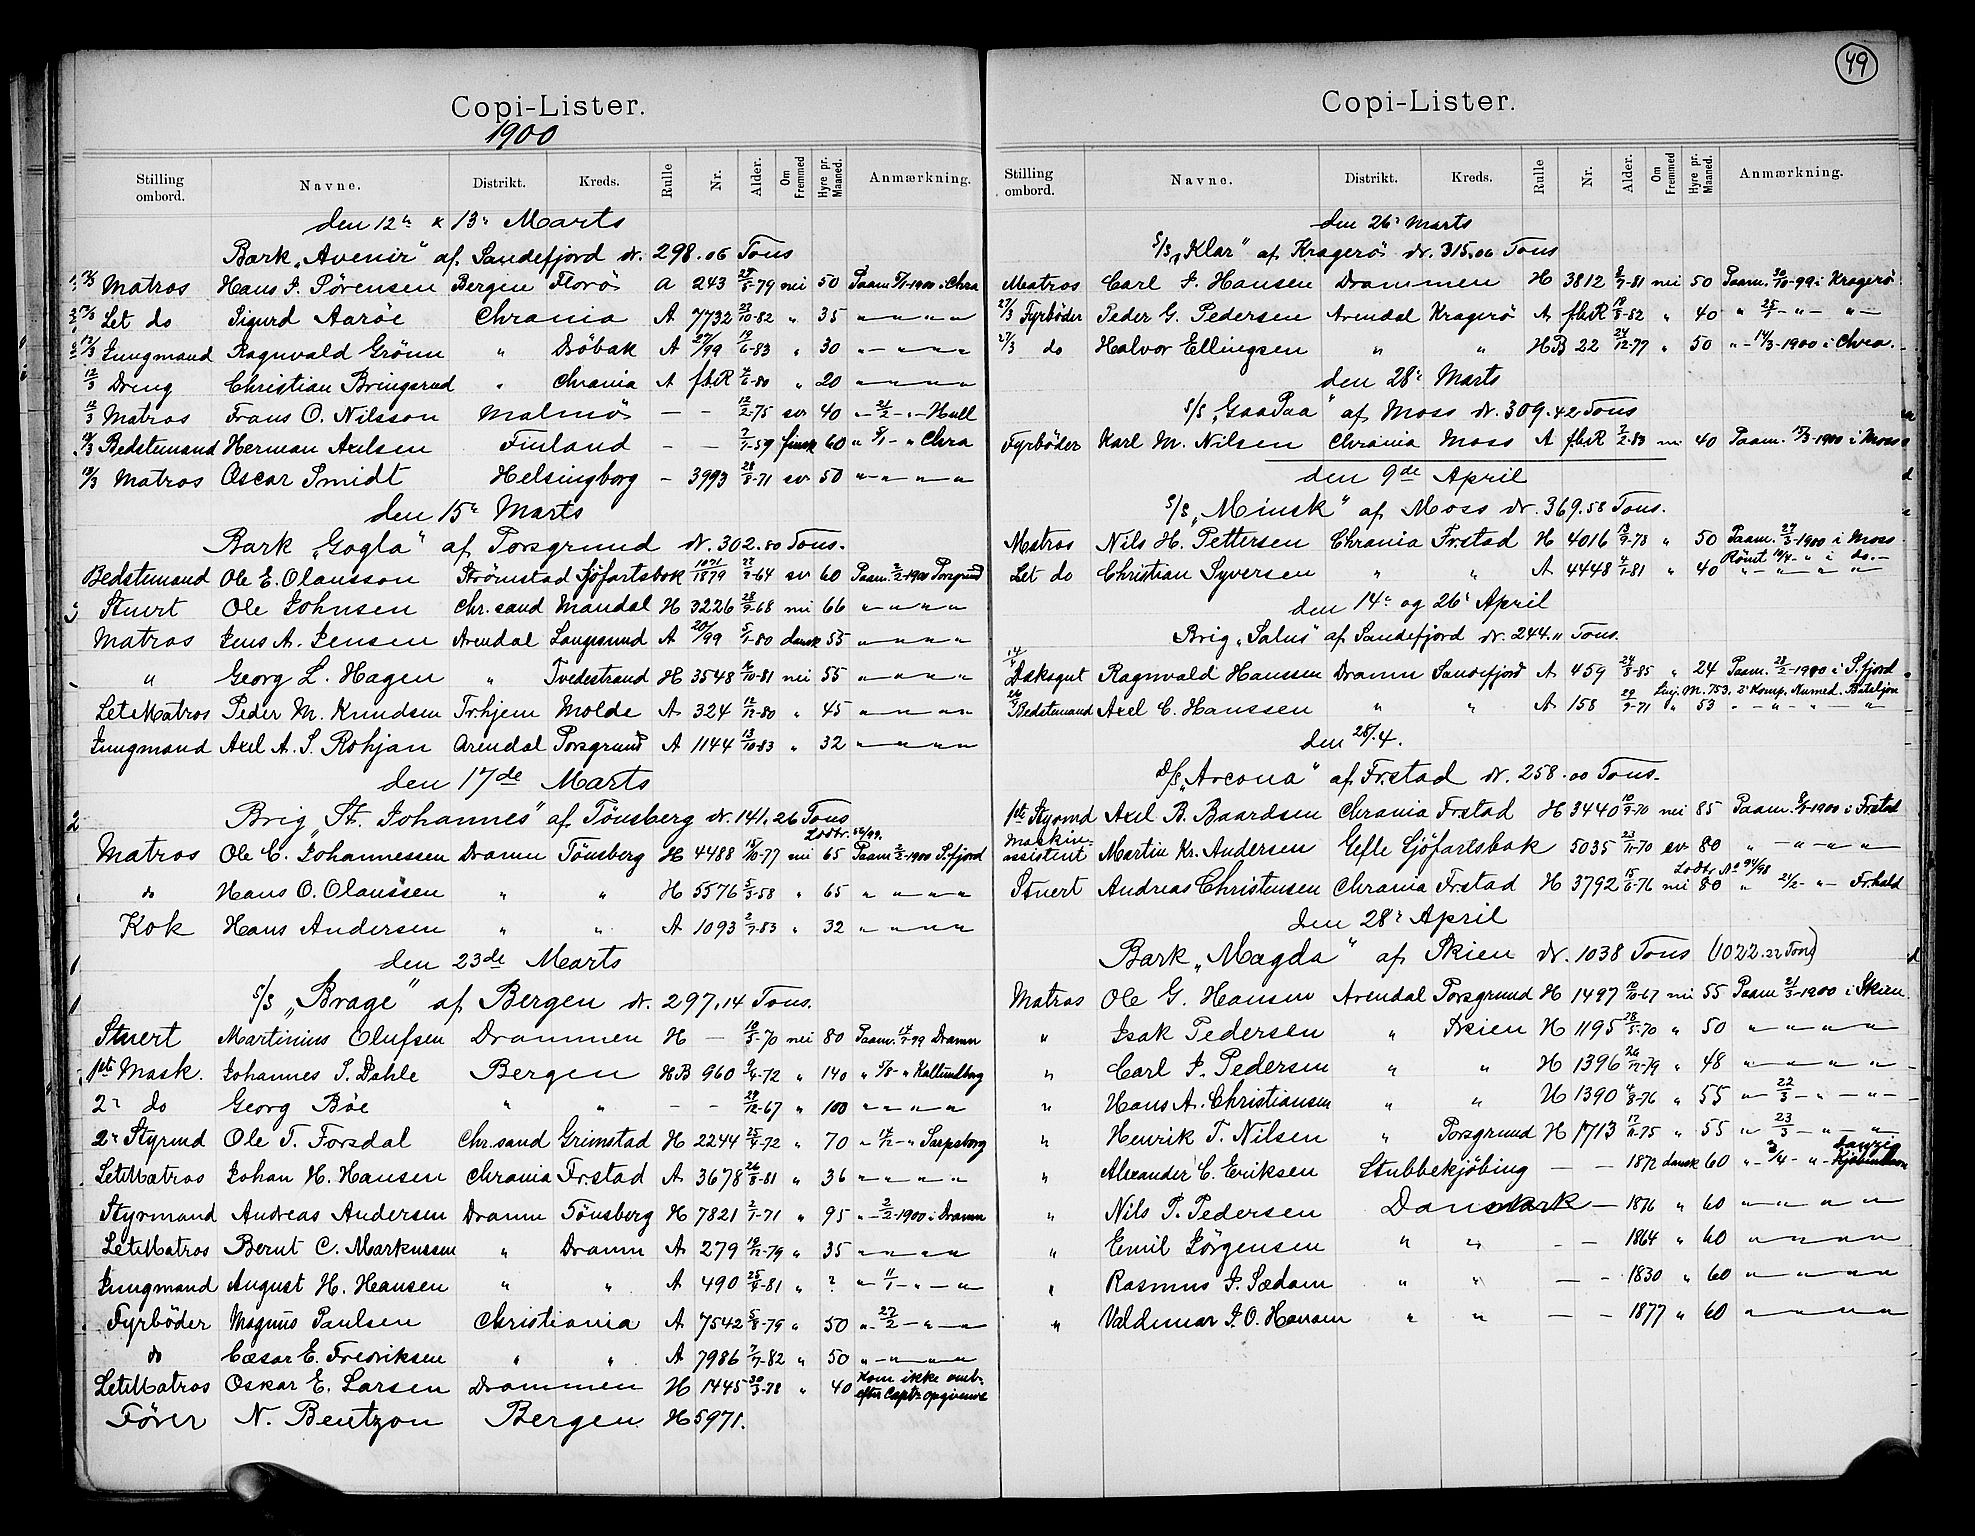 49
Copi-Lister.
1900
Stilling ombord. Navne. Distrikt. Kreds. Rulle Nr. Alder. Om Fremmed Hyre pr. Maaned. Anmærkning.
den 12te & 13' Marts
Bark „Avenir" af Sandefjord dr. 298.06 Tons
Matros Hans J. Sörensen Bergen Florö A 243 79 nei 50 Paam. 1900 i Chra
Let do Sigurd Aaröe Chrania A 7732 27/10-82 " 35 " " " "
12/3 Jungmand Ragnvald Grönn " Dröbak A 27/99 12/6-83 " 30 " " " "
12/3 Dreng Christian Bringsrud " Chrania A fbR 80 " 20 " " " "
12/3 Matros Frans O. Nilsson Malmö — — 12/2-75 sv 40 " 21/2 - " - Hull
Bedstemand Herman Axelsen Finland — — 7/1-59 finsk 60 " " Chra
13/3 Matros Oscar Smidt Helsingborg — 3993 28/8-71 sv 50 " " " "
den 15de Marts
Bark „Gogla" af Porsgrund dr. 302.80 Tons.
Bedstemand Ole E. Olausson Strömstad Sjöfartsbok 1071/1879 64 sv 60 Paam. 1900 Porsgrund
Stuert Ole Johnsen Chr.sand Mandal H 3226 28/9-68 nei 66 " " " "
Matros Jens A. Jensen Arendal Langesund A 20/99 5/1-80 dansk 55 " " " "
" Georg L. Hagen " Tvedestrand H 3548 10-81 nei 55 " " " "
Let Matros Peder M. Knudsen Tr.hjem Molde A 324 12/12-80 " 45 " " " "
Jungmand Axel A. S. Rohjan Arendal Porsgrund A 1144 13/10-83 " 32 " " " "
den 17de Marts
Brig „St. Johannes" af Tönsberg dr. 141.26 Tons
Matros Ole C. Johannessen Dramn Tönsberg H 4488 15/10-77 nei 65 Paam. 1900 S.fjord
do Hans O. Olaussen " " H 5576 5/3-58 " 65 " " " "
Kok Hans Andersen " " A 1093 83 " 32 " " " "
den 23de Marts
S/S „Brage" af Bergen dr. 297.14 Tons.
Stuert Martinius Olufsen Drammen H — 70 nei 80 Paam. 99 Dramn
1ste Mask. Johannes S. Dahle Bergen HB 960 72 " 140 " " Kallundborg
2' do Georg Böe " " — — 29/12-67 " 100 " " " "
2' Styrmd Ole T. Forsdal Chr.sand Grimstad H 2244 72 " 70 " " Sarpsborg
Let Matros Johan H. Hansen Chrania Fr.stad A 3678 26/8-81 " 36 " " " "
Styrmand Andreas Andersen Dramn Tönsberg H 7821 71 " 95 " 2/2-1900 i Dramn
Let Matros Bernt C. Markussen " Dramn A 279 79 " 35 " " " "
Jungmand August H. Hansen " " A 490 81 " ? " 11/1 - " - "
Fyrböder Magnus Paulsen Christiania A 7542 5/8-79 " 50 " 27/2 - " - "
do Cæsar E. Fredriksen " " A 7986 7/7-82 " 50 " " " "
Let Matros Oskar E. Larsen Drammen H 1445 30/3-78 " 40 Kom ikke omb. efter Capt. opgivende
Förer N. Bentzon Bergen H 5971.
Copi-Lister.
Stilling ombord. Navne. Distrikt. Kreds. Rulle Nr. Alder. Om Fremmed Hyre pr. Maaned. Anmærkning.
den 26' Marts
S/S „Klar" af Kragerö dr. 315.06 Tons
Matros Carl J. Hansen Drammen H 3812 81 nei 50 Paam. 30/10-99 i Kragerö
27/3 Fyrböder Peder G. Pedersen Arendal Kragerö A fbR 82 " 40 " " "
27/3 do Halvor Ellingsen " " HB 22 24/12-77 " 50 " 14/3-1900 i Chra.
den 28' Marts
S/S „GaaPaa" af Moss dr. 309.42 Tons
Fyrböder Karl M. Nilsen Chrania Moss A fbR 83 nei 40 Paam. 1900 i Moss
den 9de April
S/S „Minsk" af Moss dr. 369.58 Tons.
Matros Nils H. Pettersen Chrania Fr.stad H 4016 13/9-78 " 50 Paam. 27/3-1900 i Moss
Let do Christian Syversen " " A 4448 81 " 40 Römt " i do.
den 14' og 26' April
Brig „Salus" af Sandefjord dr. 244.11 Tons.
14/4 Dæksgut Ragnvald Hanssen Dramn Sandefjord A 459 24/8-85 " 24 Paam. 28/2-1900 i S.fjord
26/4 Bedstemand Axel C. Hanssen " " A 158 71 " 53
den 28/4.
D/S „Arcona" af Fr.stad dr. 258.00 Tons.
1ste Styrmd Axel B. Baardsen Chrania Fr.stad H 3440 10/9-70 nei 85 Paam. 1900 i Fr.stad
Maskinassistent Martin Kr. Andersen Gefle Sjöfartsbok 5035 23/11-70 sv 80 " " " "
Stuert Andreas Christensen Chrania Fr.stad H 3792 15/6-76 nei 80 " 21/2 " Fr.hald
den 28' April
Bark „Magda" af Skien dr. 1038 Tons (1022.22 Tons)
Matros Ole G. Hansen Arendal Porsgrund H 1497 67 nei 55 Paam 21/3-1900 i Skien
" Isak Pedersen " Skien H 1195 28/5-70 " 50 " " " "
" Carl J. Pedersen " " H 1396 26/12-79 " 48 " " " "
" Hans A. Christiansen " " H 1390 8-76 " 55 " 22/3 - " - "
" Henrik T. Nilsen " Porsgrund H 1713 75 " 55 " 23/3 - " - "
" Alexander C. Eriksen Stubbekjöbing — — 1872 dansk 60 " " Danzig
" Nils P. Pedersen Danmark — 1876 " 60 " " " "
" Emil Jörgensen " " — — 1864 " 60 " " " "
" Rasmus J. Sædam " " — — 1830 " 60 " " " "
" Valdemar J. O. Hansen " " — — 1877 " 60 " " " "